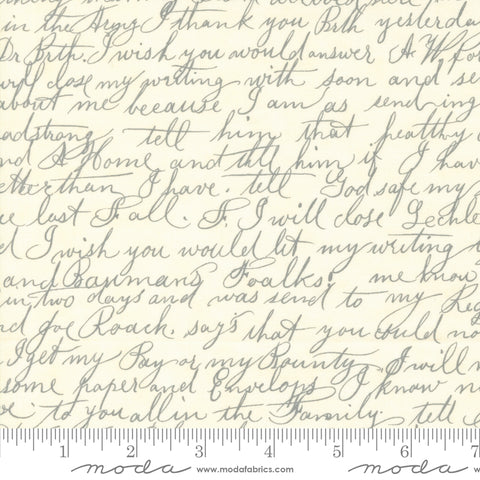 in the Army I thank you Brth yesterda
Dr Brth. I wish you would answer A W for
will close my writing with soon and se
about me because I am as send ing
adstrong tell him that healthy
nd A Home and till him if I hav
etter than I have. tell God safe my
e last Fall. F. I will close Lechle
d I wish you would let my writing
and Baumans Foalks. me know
in two days and was send to my Reg
nd Joe Roach. say's that you could no
I get my Pay or my Bounty I will
some paper and Envelops I know n
to you all in the Family. tell
1 2 3 4 5 6 7
moda www.modafabrics.com moda